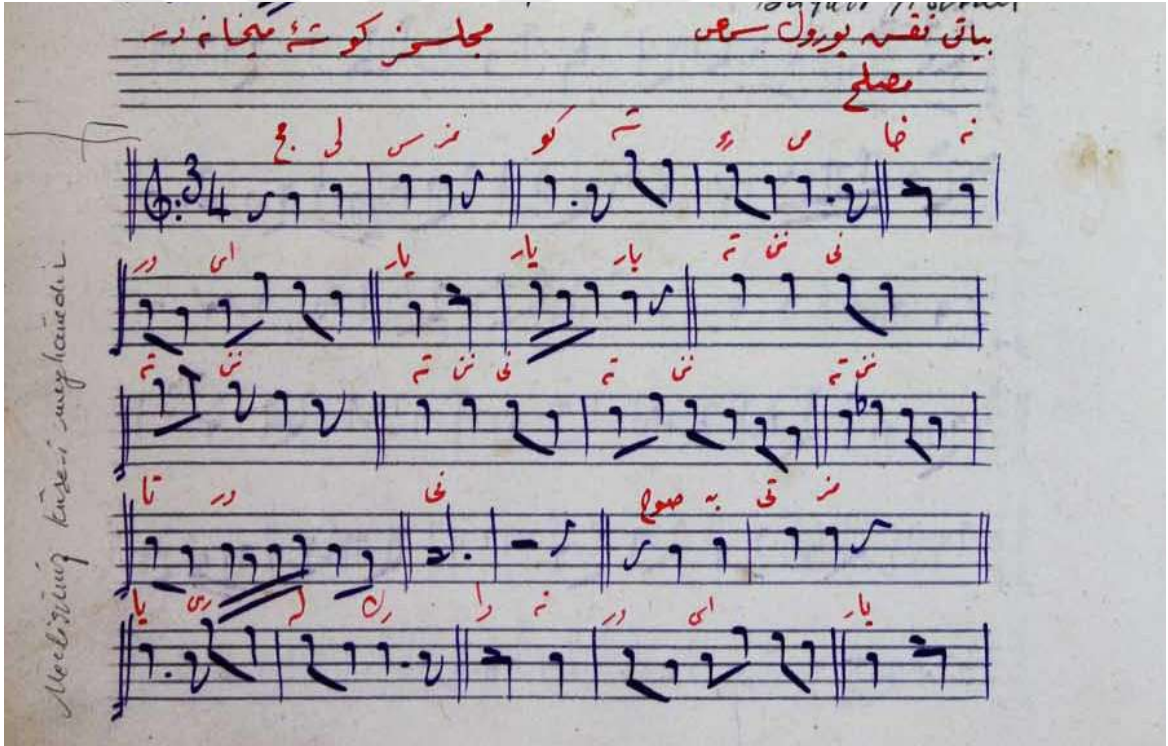 بياتى نفس يورول مجلسمز كوشهٔ ميخانه در
مصلح
مج لى س مز كو شه ءِ مى خا نه
3/4
در اى يار يار يار ته نن نى
ته نن ته نن نى ته نن ته نن
تا در نى صوح به تى مز
يا رى له رك دا نه در اى يار
Meclisimiz kûşe-i meyhanedir